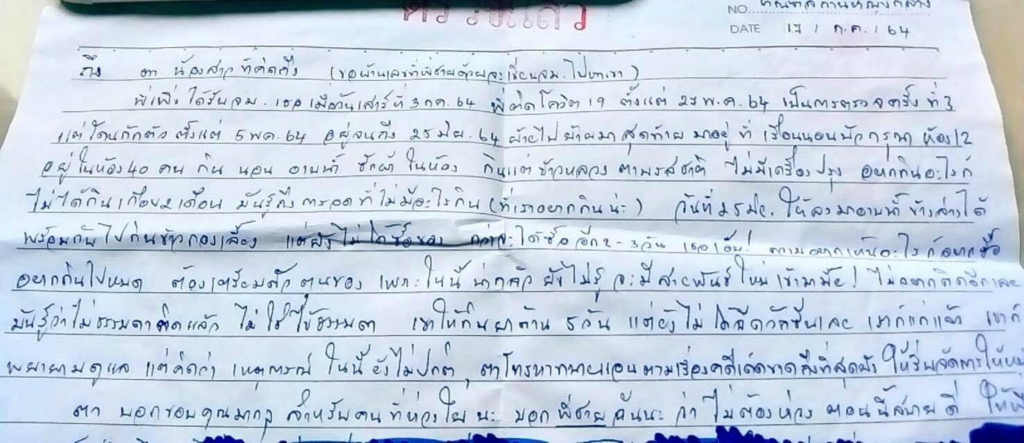 ตรวจแล้ว
NO. ทัณฑสถานหญิงกลาง
DATE 17 / ก.ค. / 64
ถึง ตา น้องสาวที่คิดถึง (ขอบ้านเลขที่พี่ชายด้วยจะเขียนจม.ไปหาเขา)
พี่เพิ่งได้รับจม. เธอเมื่อวันเสาร์ที่ 3 กค. 64 พี่ติดโควิด 19 ตั้งแต่ 25 พ.ค. 64 เป็นการตรวจครั้งที่ 3
แต่โดนกักตัว ตั้งแต่ 5 พค. 64 อยู่จนถึง 25 มิย. 64 ย้ายไปย้ายมาสุดท้ายมาอยู่ที่ เรือนนอนบัวกรุณา ห้อง 12
อยู่ในห้อง 40 คน กิน นอน อาบน้ำ ซักผ้า ในห้อง กินแต่ข้าวหลวง ตามรสชาติ ไม่มีเครื่องปรุง อยากกินอะไรก็
ไม่ได้กินเกือบ 2 เดือน มันรู้ถึงการอดที่ไม่มีอะไรกิน (ที่เราอยากกินน่ะ) วันที่ 25 มิย. ให้ลงมาอาบน้ำข้างล่างได้
พร้อมกันไปกินข้าวกองเลี้ยง แต่ยังไม่ได้ซื้อของ กว่าจะได้ซื้ออีก 2-3 วัน เธอเอ๊ย! เห็นอะไรก็อยากซื้อ
อยากกินไปหมด ต้องเตรียมตัวตุนของ เพราะในนี้น่ากลัว ยังไม่รู้จะมีสายพันธ์ใหม่เข้ามามั้ย! ไม่อยากติดอีกและ
มันรู้ว่าไม่ธรรมดาติดแล้ว ไม่ใช่ไข้ธรรมดา เขาให้กินยาต้าน 5 วัน แต่ยังไม่ได้ฉีดวัคซีนเลย เราก็แก่แล้ว เขาก็
พยายามดูแล แต่คิดว่า เหตุการณ์ในนี้ยังไม่ปกติ ตาโทรหาทนายเอนตามเรื่องคดีเด็ดขาดถึงที่สุดยัง ให้รีบจัดการให้
ตา บอกขอบคุณมากๆ สำหรับคนที่ห่วงใยนะ บอกพี่ชายฉันนะ ว่าไม่ต้องห่วง ตอนนี้สบายดี